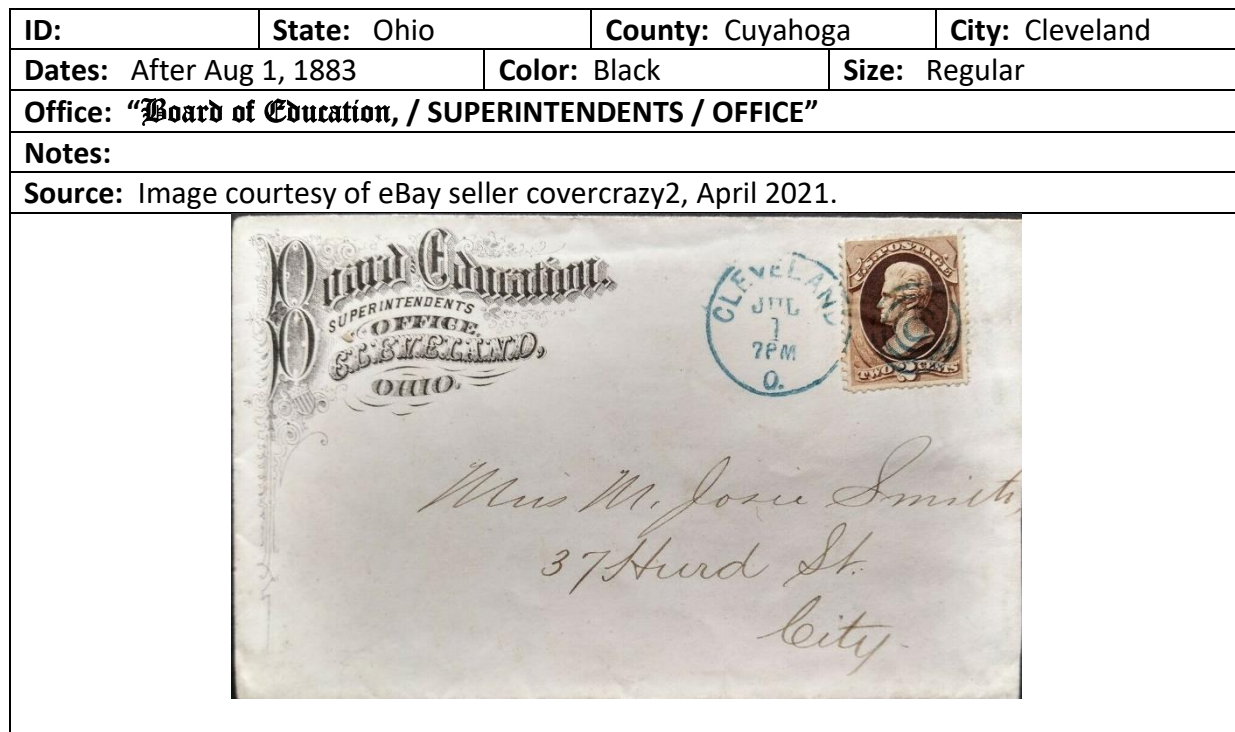 ID: State: Ohio County: Cuyahoga City: Cleveland
Dates: After Aug 1, 1883 Color: Black Size: Regular
Office: “Board of Education, / SUPERINTENDENTS / OFFICE”
Notes:
Source: Image courtesy of eBay seller covercrazy2, April 2021.
Board of Education.
SUPERINTENDENTS
OFFICE.
CLEVELAND,
OHIO.
CLEVELAND
JUL
1
7PM
O.
U.S. POSTAGE
TWO 2 CENTS
Miss M. Josie Smith,
37 Hurd St.
City.